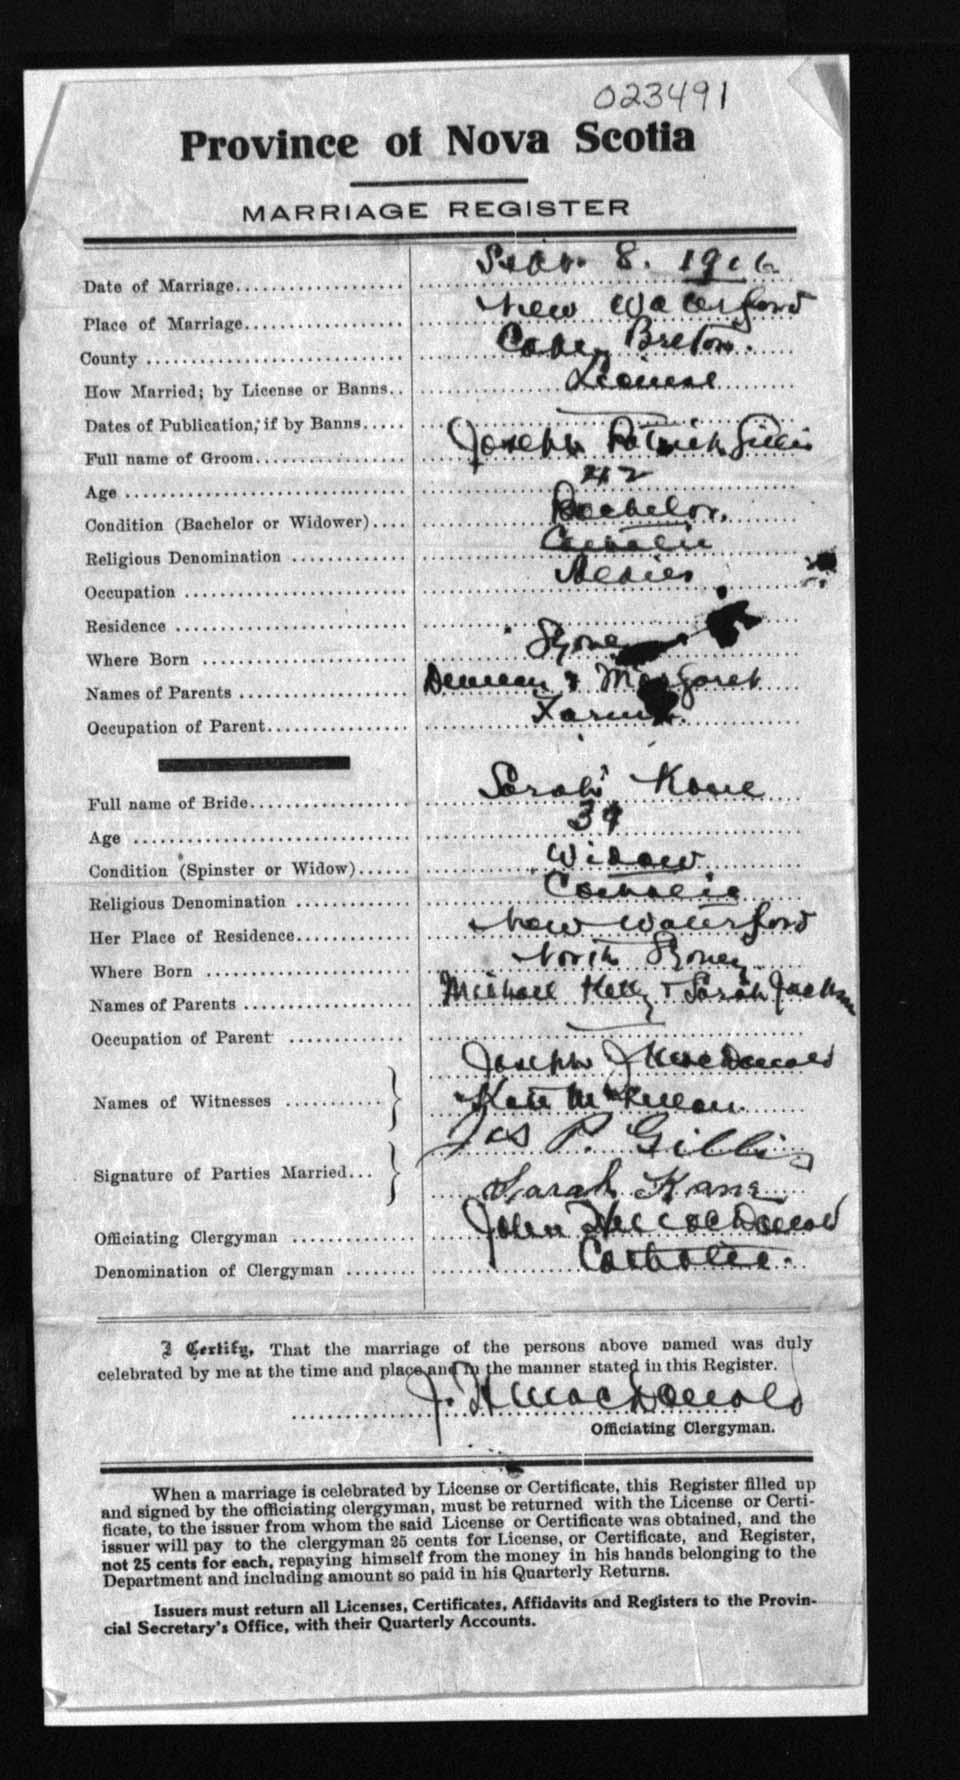 023491
Province of Nova Scotia
MARRIAGE REGISTER
Date of Marriage Sept. 8. 1916
Place of Marriage New Waterford
County Cape Breton.
How Married; by License or Banns License
Dates of Publication, if by Banns —
Full name of Groom Joseph Patrick Gillis
Age 42
Condition (Bachelor or Widower) Bachelor.
Religious Denomination Catholic
Occupation
Residence
Where Born Sydney
Names of Parents Duncan & Margaret
Occupation of Parent Farmer.
Full name of Bride Sarah Kane
Age 39
Condition (Spinster or Widow) Widow
Religious Denomination Catholic
Her Place of Residence New Waterford
Where Born North Sydney
Names of Parents Michael Kelly & Sarah Jackson
Occupation of Parent —
Joseph J MacDonald
Names of Witnesses Kate McKinnon
Jos P. Gillis
Signature of Parties Married
Sarah Kane
Officiating Clergyman John MacDonald
Denomination of Clergyman Catholic.
I Certify, That the marriage of the persons above named was duly
celebrated by me at the time and place and in the manner stated in this Register.
J. H MacDonald
Officiating Clergyman.
When a marriage is celebrated by License or Certificate, this Register filled up
and signed by the officiating clergyman, must be returned with the License or Certi-
ficate, to the issuer from whom the said License or Certificate was obtained, and the
issuer will pay to the clergyman 25 cents for License, or Certificate, and Register,
not 25 cents for each, repaying himself from the money in his hands belonging to the
Department and including amount so paid in his Quarterly Returns.
Issuers must return all Licenses, Certificates, Affidavits and Registers to the Provin-
cial Secretary's Office, with their Quarterly Accounts.